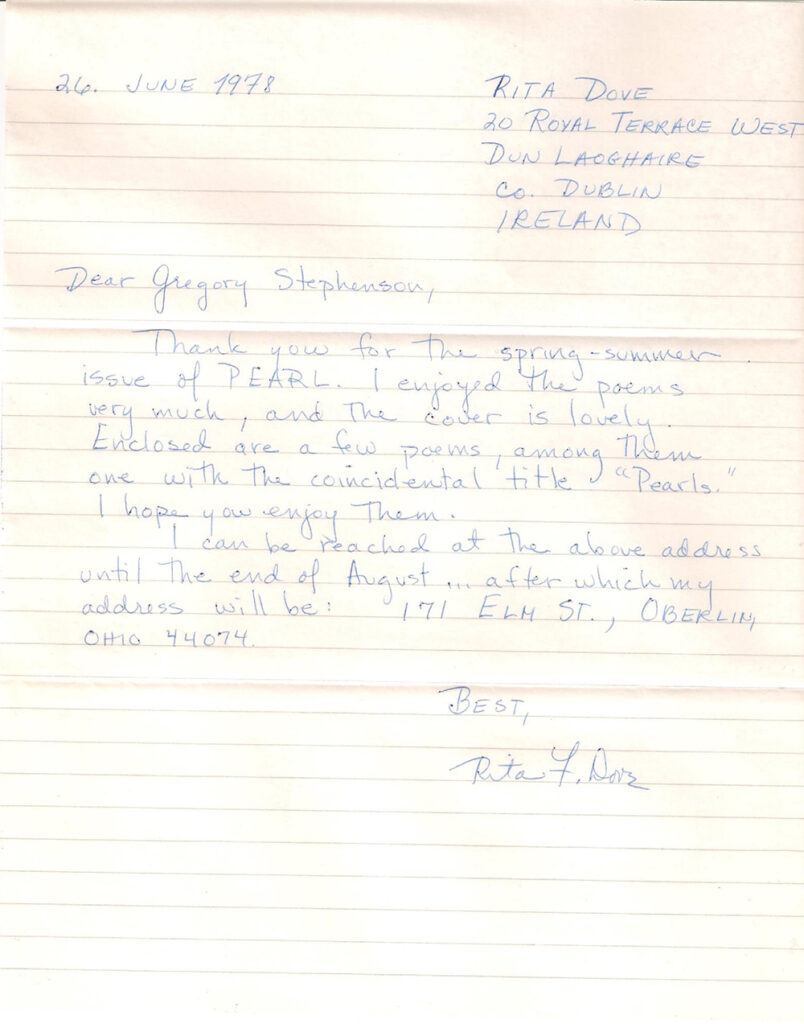 26. JUNE 1978
RITA DOVE
20 ROYAL TERRACE WEST
DUN LAOGHAIRE
CO. DUBLIN
IRELAND
Dear Gregory Stephenson,
Thank you for the spring-summer
issue of PEARL. I enjoyed the poems
very much, and the cover is lovely.
Enclosed are a few poems, among them
one with the coincidental title "Pearls."
I hope you enjoy them.
I can be reached at the above address
until the end of August... after which my
address will be: 171 ELM ST., OBERLIN,
OHIO 44074.
BEST,
Rita F. Dove